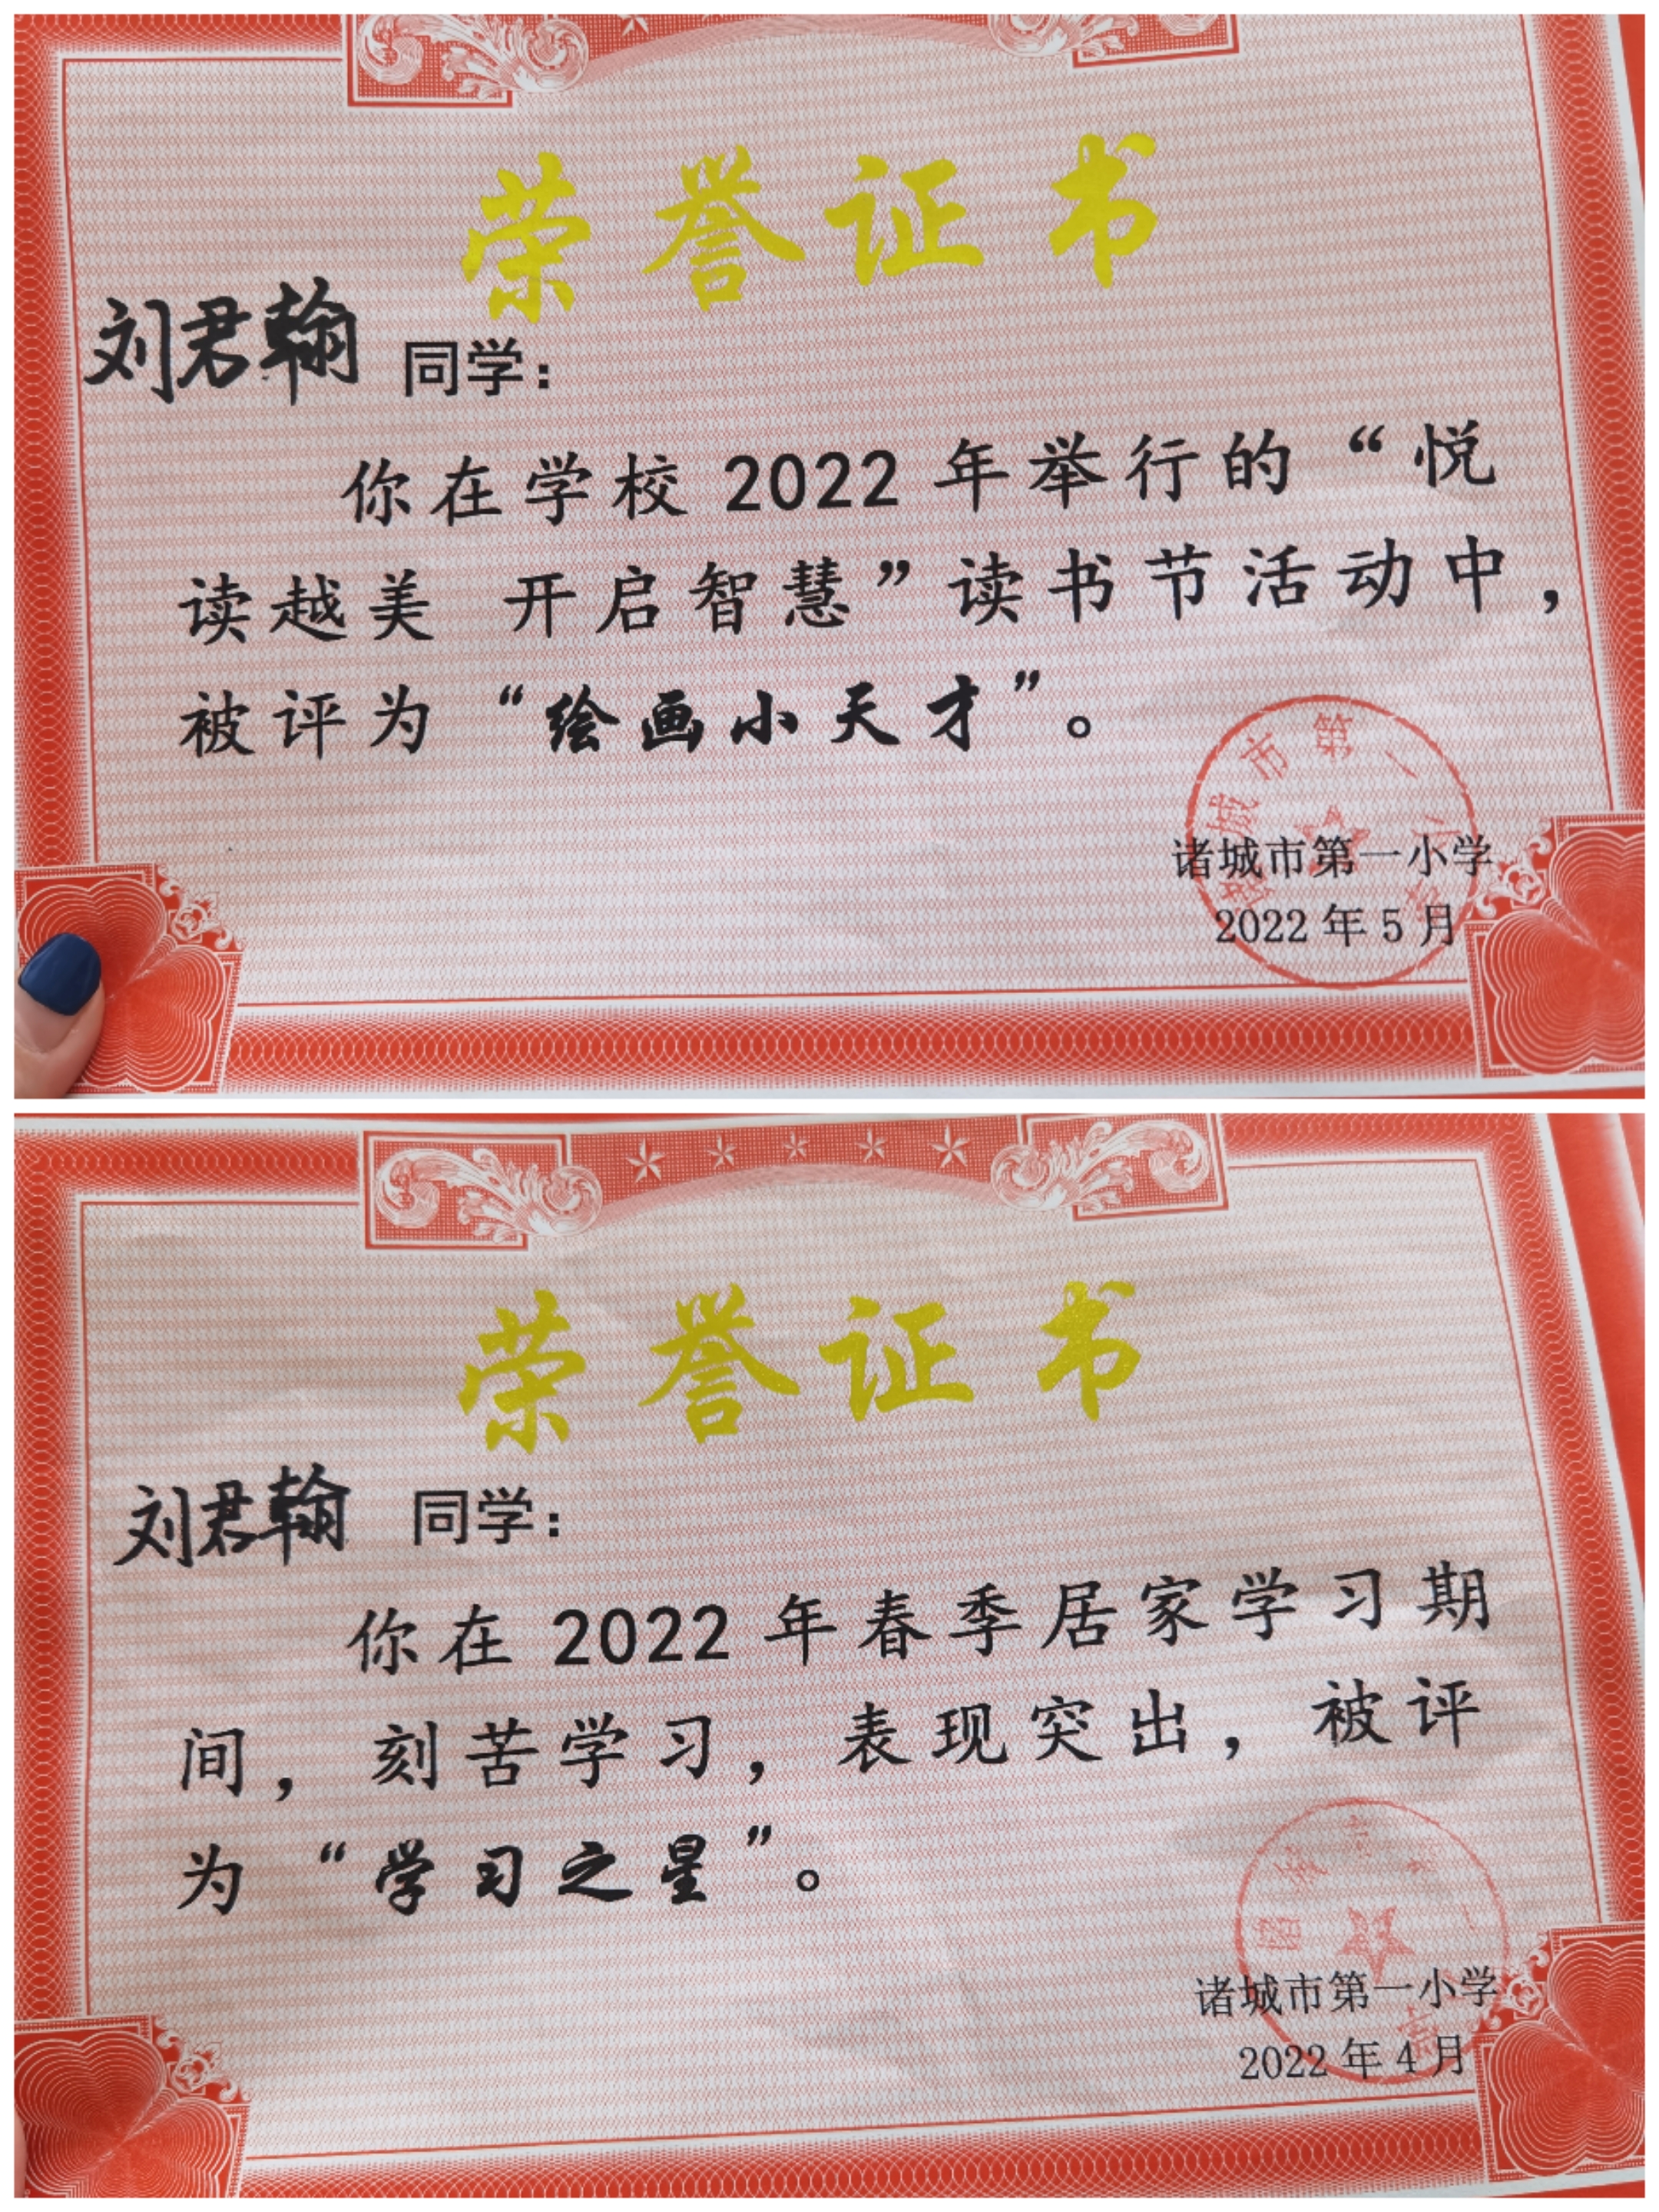 荣誉证书
刘君翰 同学：
你在学校 2022 年举行的“悦
读越美 开启智慧”读书节活动中，
被评为“绘画小天才”。
诸城市第一小学
2022 年 5 月
诸城市第一小学
荣誉证书
刘君翰 同学：
你在 2022 年春季居家学习期
间，刻苦学习，表现突出，被评
为“学习之星”。
诸城市第一小学
2022 年 4 月